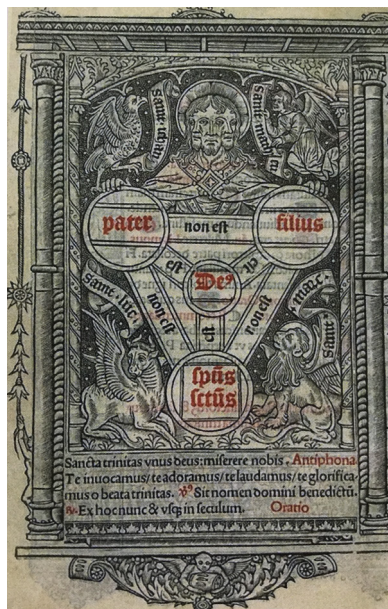 sanct mat
pater
non est
filius
est
est
De⁹
Sanct. luc.
non est
est
non est
Sanct marc.
spūs
sctūs
Sancta trinitas vnus deus: miserere nobis. Antiphona
Te inuocamus/ te adoramus/ te laudamus/ te glorifica-
mus o beata trinitas. ℣⁹ Sit nomen domini benedictū.
℟. Ex hoc nunc & vsq; in seculum. Oratio